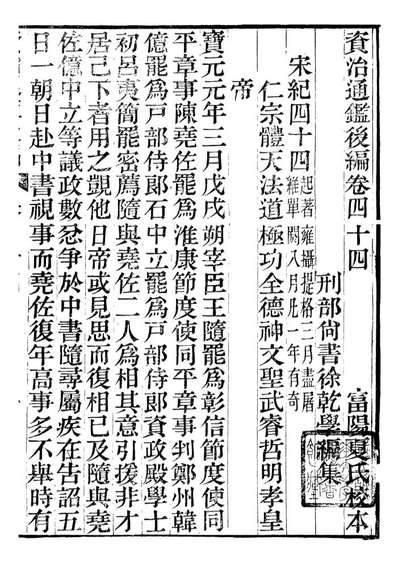 資治通鑑後編卷四十四 富陽夏氏校本
刑部尚書徐乾學編集
宋紀四十四 起著雍攝提格三月盡屠
維單閼八月凡一年有奇
仁宗體天法道極功全德神文聖武睿哲明孝皇
帝
寶元元年三月戊戌朔宰臣王隨罷爲彰信節度使同
平章事陳堯佐罷爲淮康節度使同平章事判鄭州韓
億罷爲戶部侍郎石中立罷爲戶部侍郎資政殿學士
初呂夷簡罷密薦隨與堯佐二人爲相其意引援非才
居己下者用之覬他日帝或見思而復相已及隨與堯
佐億中立等議政數忿爭於中書隨尋屬疾在告詔五
日一朝日赴中書視事而堯佐復年高事多不舉時有